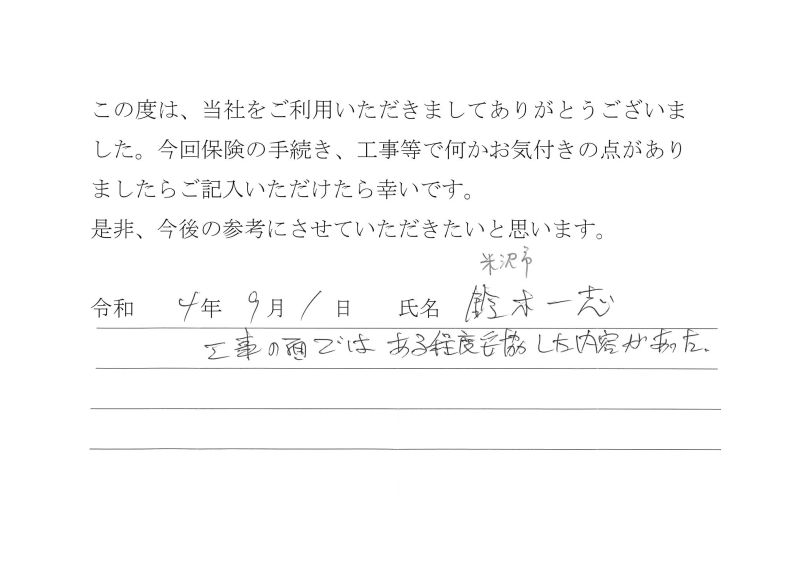 この度は、当社をご利用いただきましてありがとうございま
した。今回保険の手続き、工事等で何かお気付きの点があり
ましたらご記入いただけたら幸いです。
是非、今後の参考にさせていただきたいと思います。
米沢市
令和 4年 9月 1日 氏名 鈴木一志
工事の面では ある程度妥協した内容があった。